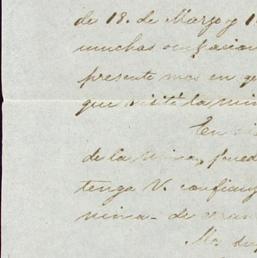 de 18. de Marzo y 1
muchas ocupacion
presente mas en ge
que visité la min
En vis
de la mina, pued
tenga V. confianz
mina - de
Me dig